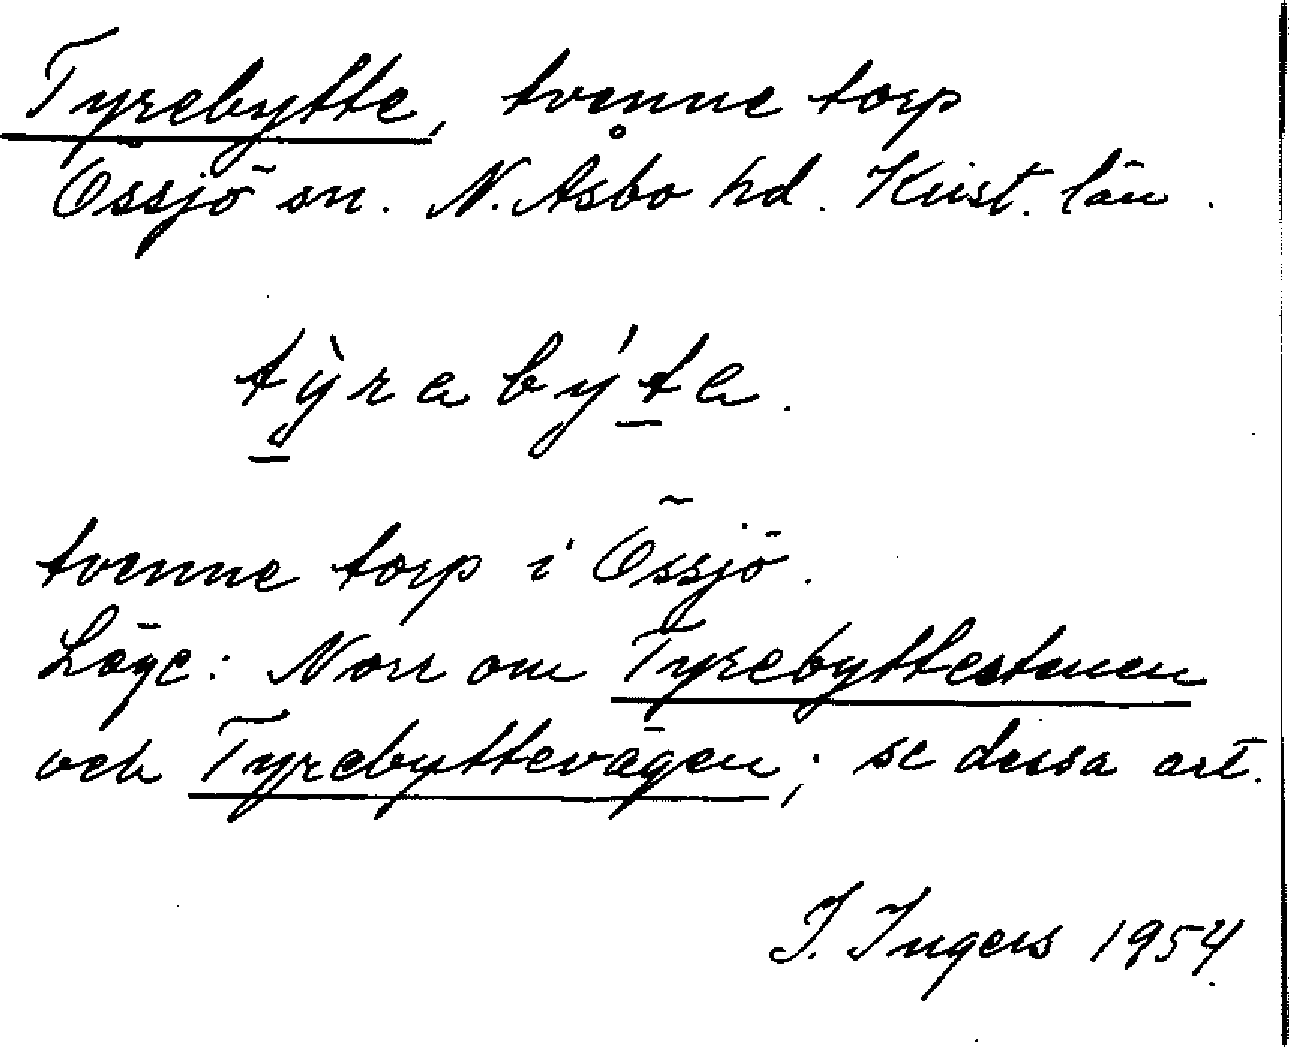 Tyrebytte, tvenne torp
Össjö sn. N. Åsbo hd. Krist. län.
tỳrabýta.
tvenne torp i Össjö.
Läge: Norr om Tyrebyttestenen
och Tyrebyttevägen; se dessa art.
I. Ingers 1954.